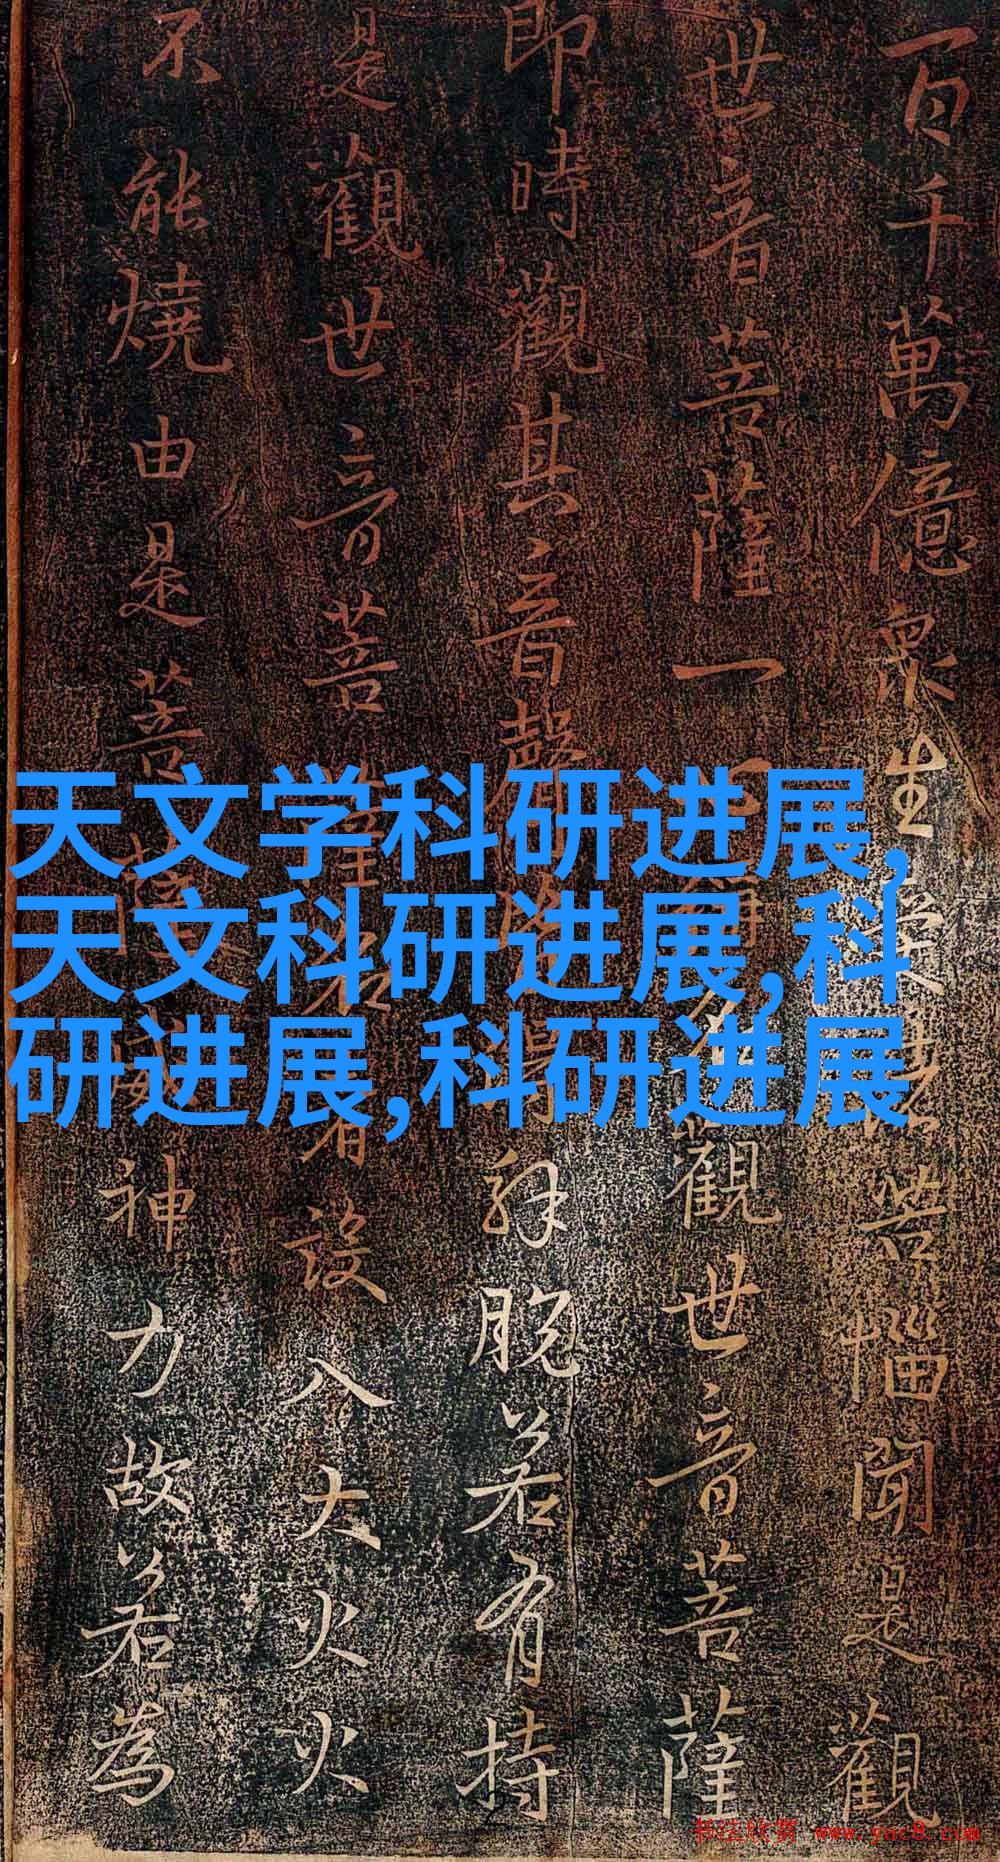 百千萬億衆生受諸苦惱聞是觀
世音菩薩一心稱名觀世音菩薩
即時觀其音聲皆得解脱若有持
是觀世音菩薩名者設入大火火
不能燒由是菩薩威神力故若為
天文学科研进展,
天文科研进展,科
研进展,科研进展
书法欣赏 www.yac8.com